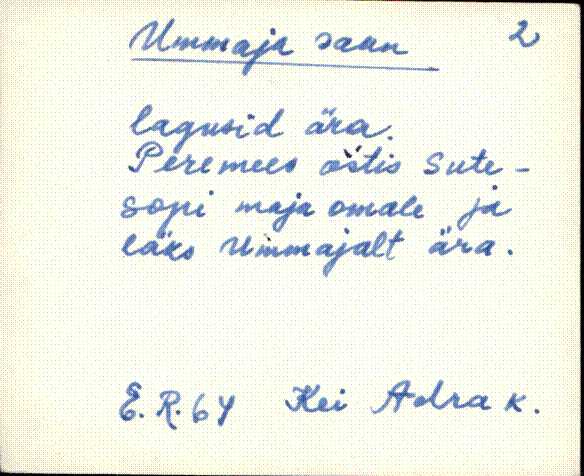 Ummaja saun 2
lagusid ära.
Peremees ostis Sute-
sopi maja omale ja
läks Ummajalt ära.
E.R. 64 Kei Adra k.